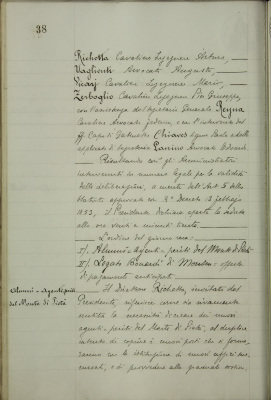 38
Richetta Cavaliere Ingegnere Arturo,
Vaglienti Avvocato Augusto,
Vicarj Cavaliere Ingegnere Mario,
Zerboglio Cavaliere Ingegnere Pier Giuseppe,
con l'assistenza del Segretario Generale Reyna
Cavaliere Avvocato Federico, e con l'intervento del
Capo di Gabinetto Chiaves signor Dante e dello
applicato di Segreteria Lanino Avvocato Edoardo.
Riscontrando con gli Amministratori
intervenuti in numero legale per la validità
delle deliberazioni, a mente dell'Art. 5 dello
Statuto approvato con R. Decreto 12 febbraio
1883, il Presidente dichiara aperta la seduta
alle ore venti e minuti trenta
L'ordine del giorno reca:
I.) Alunni-Agenti-periti del Monte di Pietà
II.) Legato Bonardi di Mondovì
di pagamenti anticipati
Alunni-Agenti periti
del Monte di Pietà
Il Direttore Richetta, invitato dal
Presidente, riferisce come sia vivamente
sentita la necessità di creare dei nuovi
agenti-periti del Monte di Pietà, al duplice
intento di coprire i nuovi posti che si forme-
ranno con la istituzione di nuovi uffici suc-
cursali, e di provvedere alle graduali sosti-